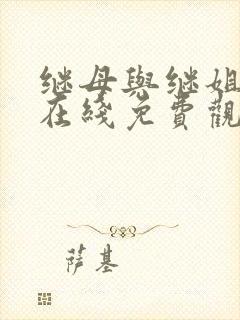 继母與继姐
在綫免費觀
萨基